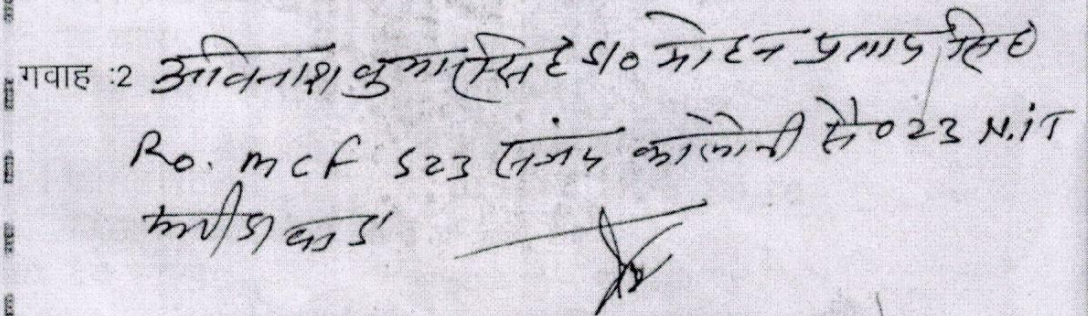 गवाह :2 अविनाश कुमार सिंह S/o मोहन प्रताप सिंह
Ro. mcf 523 संजय कालोनी सै० 23 N.iT
फरीदाबाद